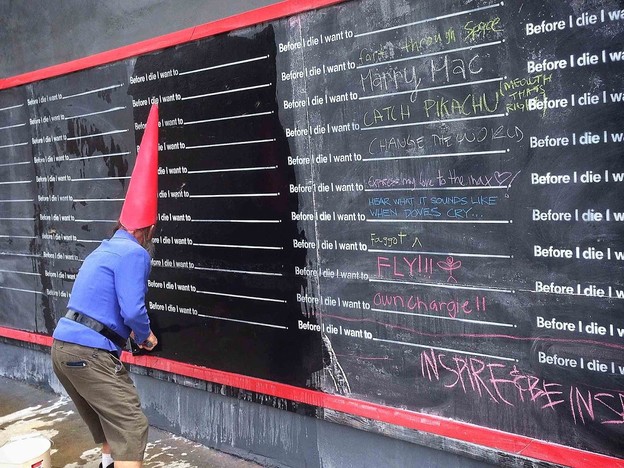 Before I die I want to
Before I die I want to
Before I die I want to
Before I die I want to
Before I die I want to
Before I die I want to
Before I die I want to
Before I die I want to
Before I die I want to
Before I die I want to
Before I die I want to
Before I die I want to
Before I die I want to
want to
want to
want to
want to
want to
want to
I want to
Before I die I want to
Before I die I want to
Before I die I want to through space
Before I die I want to Marry Mac
Before I die I want to CATCH PIKACHU (MEOWTH THAT'S RIGHT)
Before I die I want to CHANGE THE WORLD
Before I die I want to
Before I die I want to express my love to the max
Before I die I want to HEAR WHAT IT SOUNDS LIKE
WHEN DOVES CRY...
Before I die I want to Faggot ^
Before I die I want to FLY!!!
Before I die I want to own chargie!!
Before I die I want to
INSPIRE & BE INSP
Before I die I wa
Before I die I w
Before I die I w
Before I die I w
Before I die I w
Before I die I w
Before I die I w
Before I die I w
Before I die I w
Before I die I w